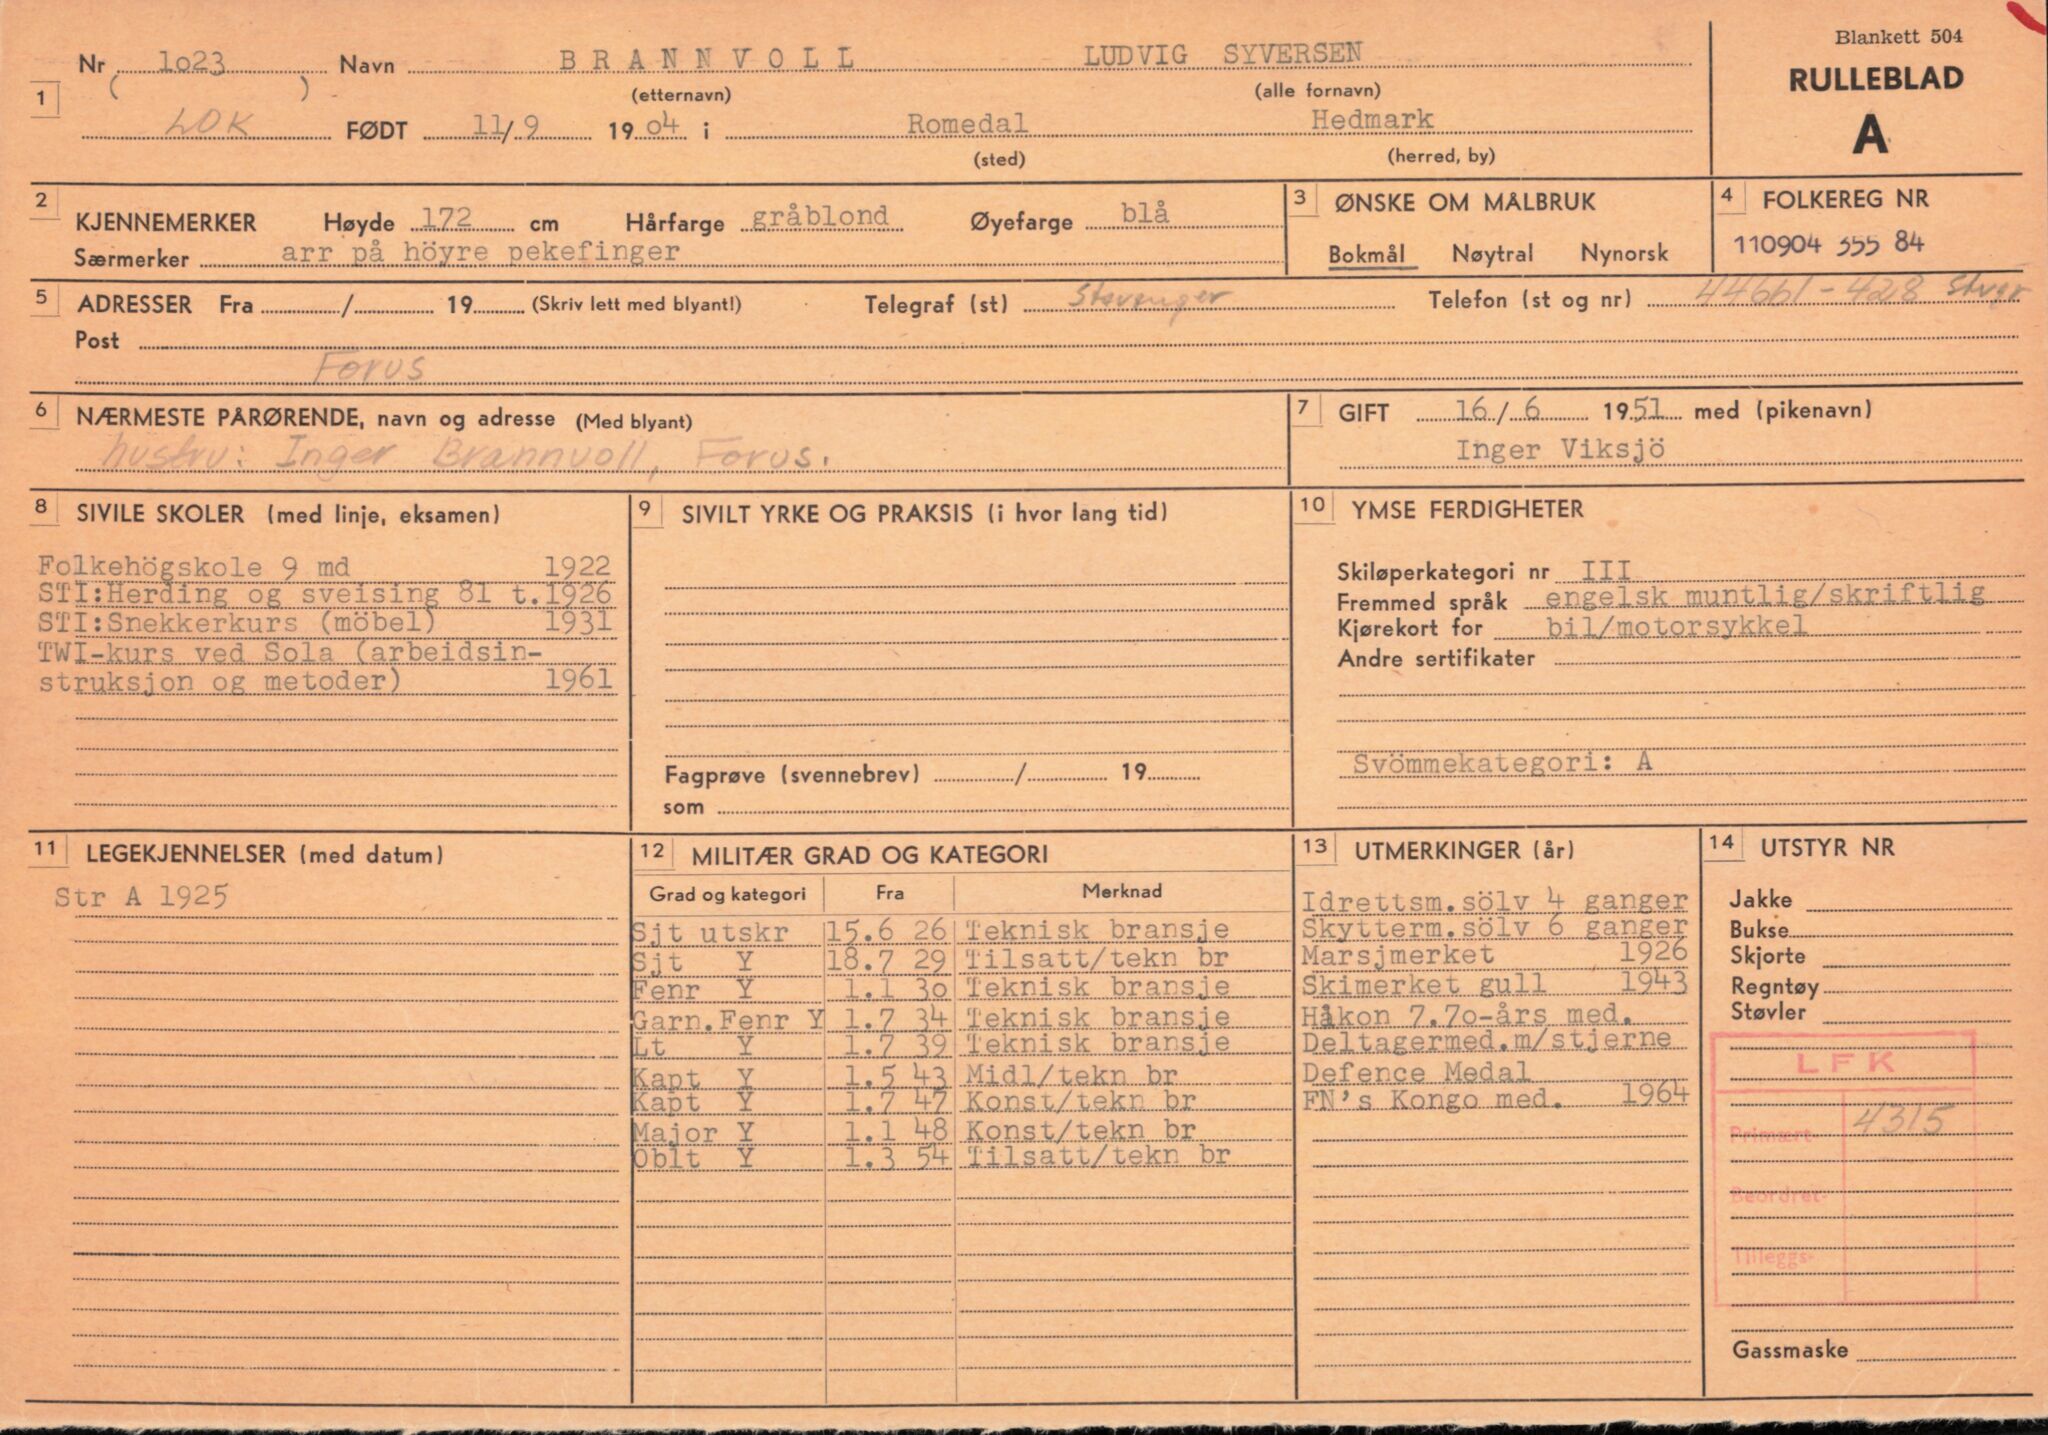 Blankett 504
RULLEBLAD
A
1 Nr 1o23 Navn BRANNVOLL LUDVIG SYVERSEN
( ) (etternavn) (alle fornavn)
LOK FØDT 11/9 19 o4 i Romedal Hedmark
(sted) (herred, by)
2 KJENNEMERKER Høyde 172 cm Hårfarge gråblond Øyefarge blå
Særmerker arr på höyre pekefinger
3 ØNSKE OM MÅLBRUK
Bokmål Nøytral Nynorsk
4 FOLKEREG NR
110904 355 84
5 ADRESSER Fra / 19 (Skriv lett med blyant!) Telegraf (st) Stavanger Telefon (st og nr) 44661-428 Stvgr
Post
Forus
6 NÆRMESTE PÅRØRENDE, navn og adresse (Med blyant)
hustru: Inger Brannvoll, Forus.
7 GIFT 16/6 1951 med (pikenavn)
Inger Viksjö
8 SIVILE SKOLER (med linje, eksamen)
Folkehögskole 9 md 1922
STI:Herding og sveising 81 t.1926
STI:Snekkerkurs (möbel) 1931
TWI-kurs ved Sola (arbeidsin-
struksjon og metoder) 1961
9 SIVILT YRKE OG PRAKSIS (i hvor lang tid)
Fagprøve (svennebrev) / 19
som
10 YMSE FERDIGHETER
Skiløperkategori nr III
Fremmed språk engelsk muntlig/skriftlig
Kjørekort for bil/motorsykkel
Andre sertifikater
Svömmekategori: A
11 LEGEKJENNELSER (med datum)
Str A 1925
12 MILITÆR GRAD OG KATEGORI
Grad og kategori Fra Merknad
Sjt utskr 15.6 26 Teknisk bransje
Sjt Y 18.7 29 Tilsatt/tekn br
Fenr Y 1.1 3o Teknisk bransje
Garn.Fenr Y 1.7 34 Teknisk bransje
Lt Y 1.7 39 Teknisk bransje
Kapt Y 1.5 43 Midl/tekn br
Kapt Y 1.7 47 Konst/tekn br
Major Y 1.1 48 Konst/tekn br
Oblt Y 1.3 54 Tilsatt/tekn br
13 UTMERKINGER (år)
Idrettsm.sölv 4 ganger
Skytterm.sölv 6 ganger
Marsjmerket 1926
Skimerket gull 1943
Håkon 7.7o-års med.
Deltagermed.m/stjerne
Defence Medal
FN's Kongo med. 1964
14 UTSTYR NR
Jakke
Bukse
Skjorte
Regntøy
Støvler
LFK
Primært 4315
Beordret-
Tilleggs-
Gassmaske